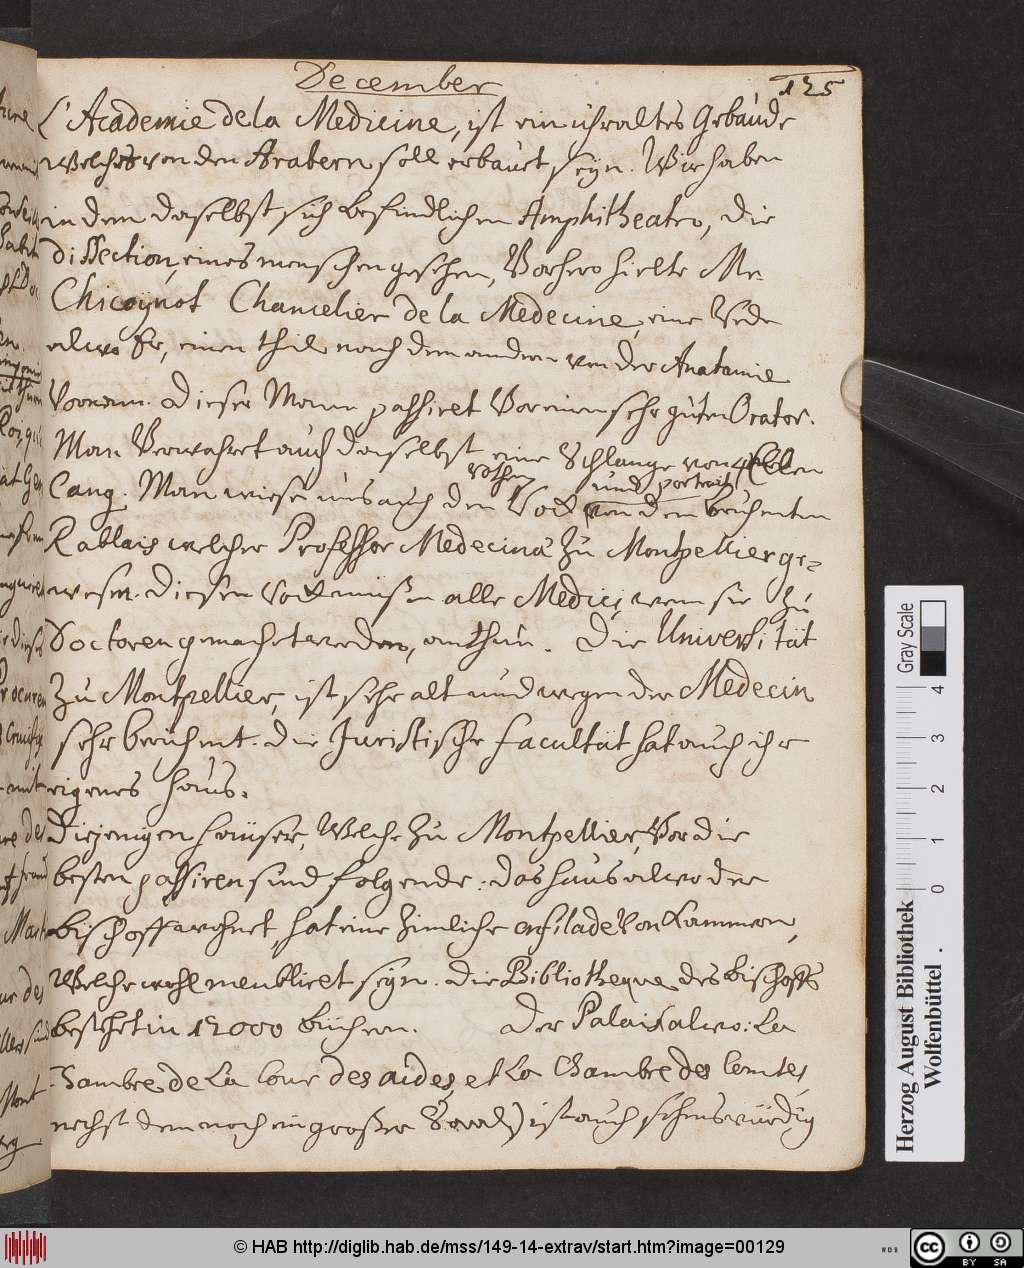 December
125
L'Academie de la Medicine, ist ein uhraltes Gebäude
welches von den Arabern soll erbauet seyn. Wir haben
in dem daselbst sich befindlichen Amphitheatro, die
dissection eines menschen gesehen, Vorhero hielte Mr.
Chicoynot Chancelier de la Medecine, eine Rede
alwo Er, einen theil nach dem andern von der Anatomie
Vornam. Dieser Mann passiret Vor einen sehr guten Orator.
Man Verwahret auch daselbst eine Schlange von 4 Ellen
rothen und portrait
lang. Man wiese uns auch den Rock von dem berühmten
Rablais welcher Professor Medecinä zu Montpellier ge-
wesen. Diesen Rock müssen alle Medici, wen sie zu
Doctoren gemachet werden, anthun. Die Universität
zu Montpellier, ist sehr alt und wegen der Medecin
sehr berühmt. Die Juristische facultät hat auch ihr
eigenes Haus.
Diejenigen Häuser, Welche zu Montpellier, Vor die
besten passiren sind folgende: das Haus alwo der
bischoff wohnet, hat eine zimliche enfilade Von Kammern,
Welche wohl meubliret seyn. die Bibliotheque des bischoffs
bestehet in 12000 büchern. Der Palais alwo: La
Chambre de La Cour des aides, et La Chambre des Comtes
nechst dem noch ein großer Saal) ist auch sehenswürdig
Gray Scale
0 1 2 3 4
Herzog August Bibliothek
Wolfenbüttel
© HAB http://diglib.hab.de/mss/149-14-extrav/start.htm?image=00129
cc BY SA